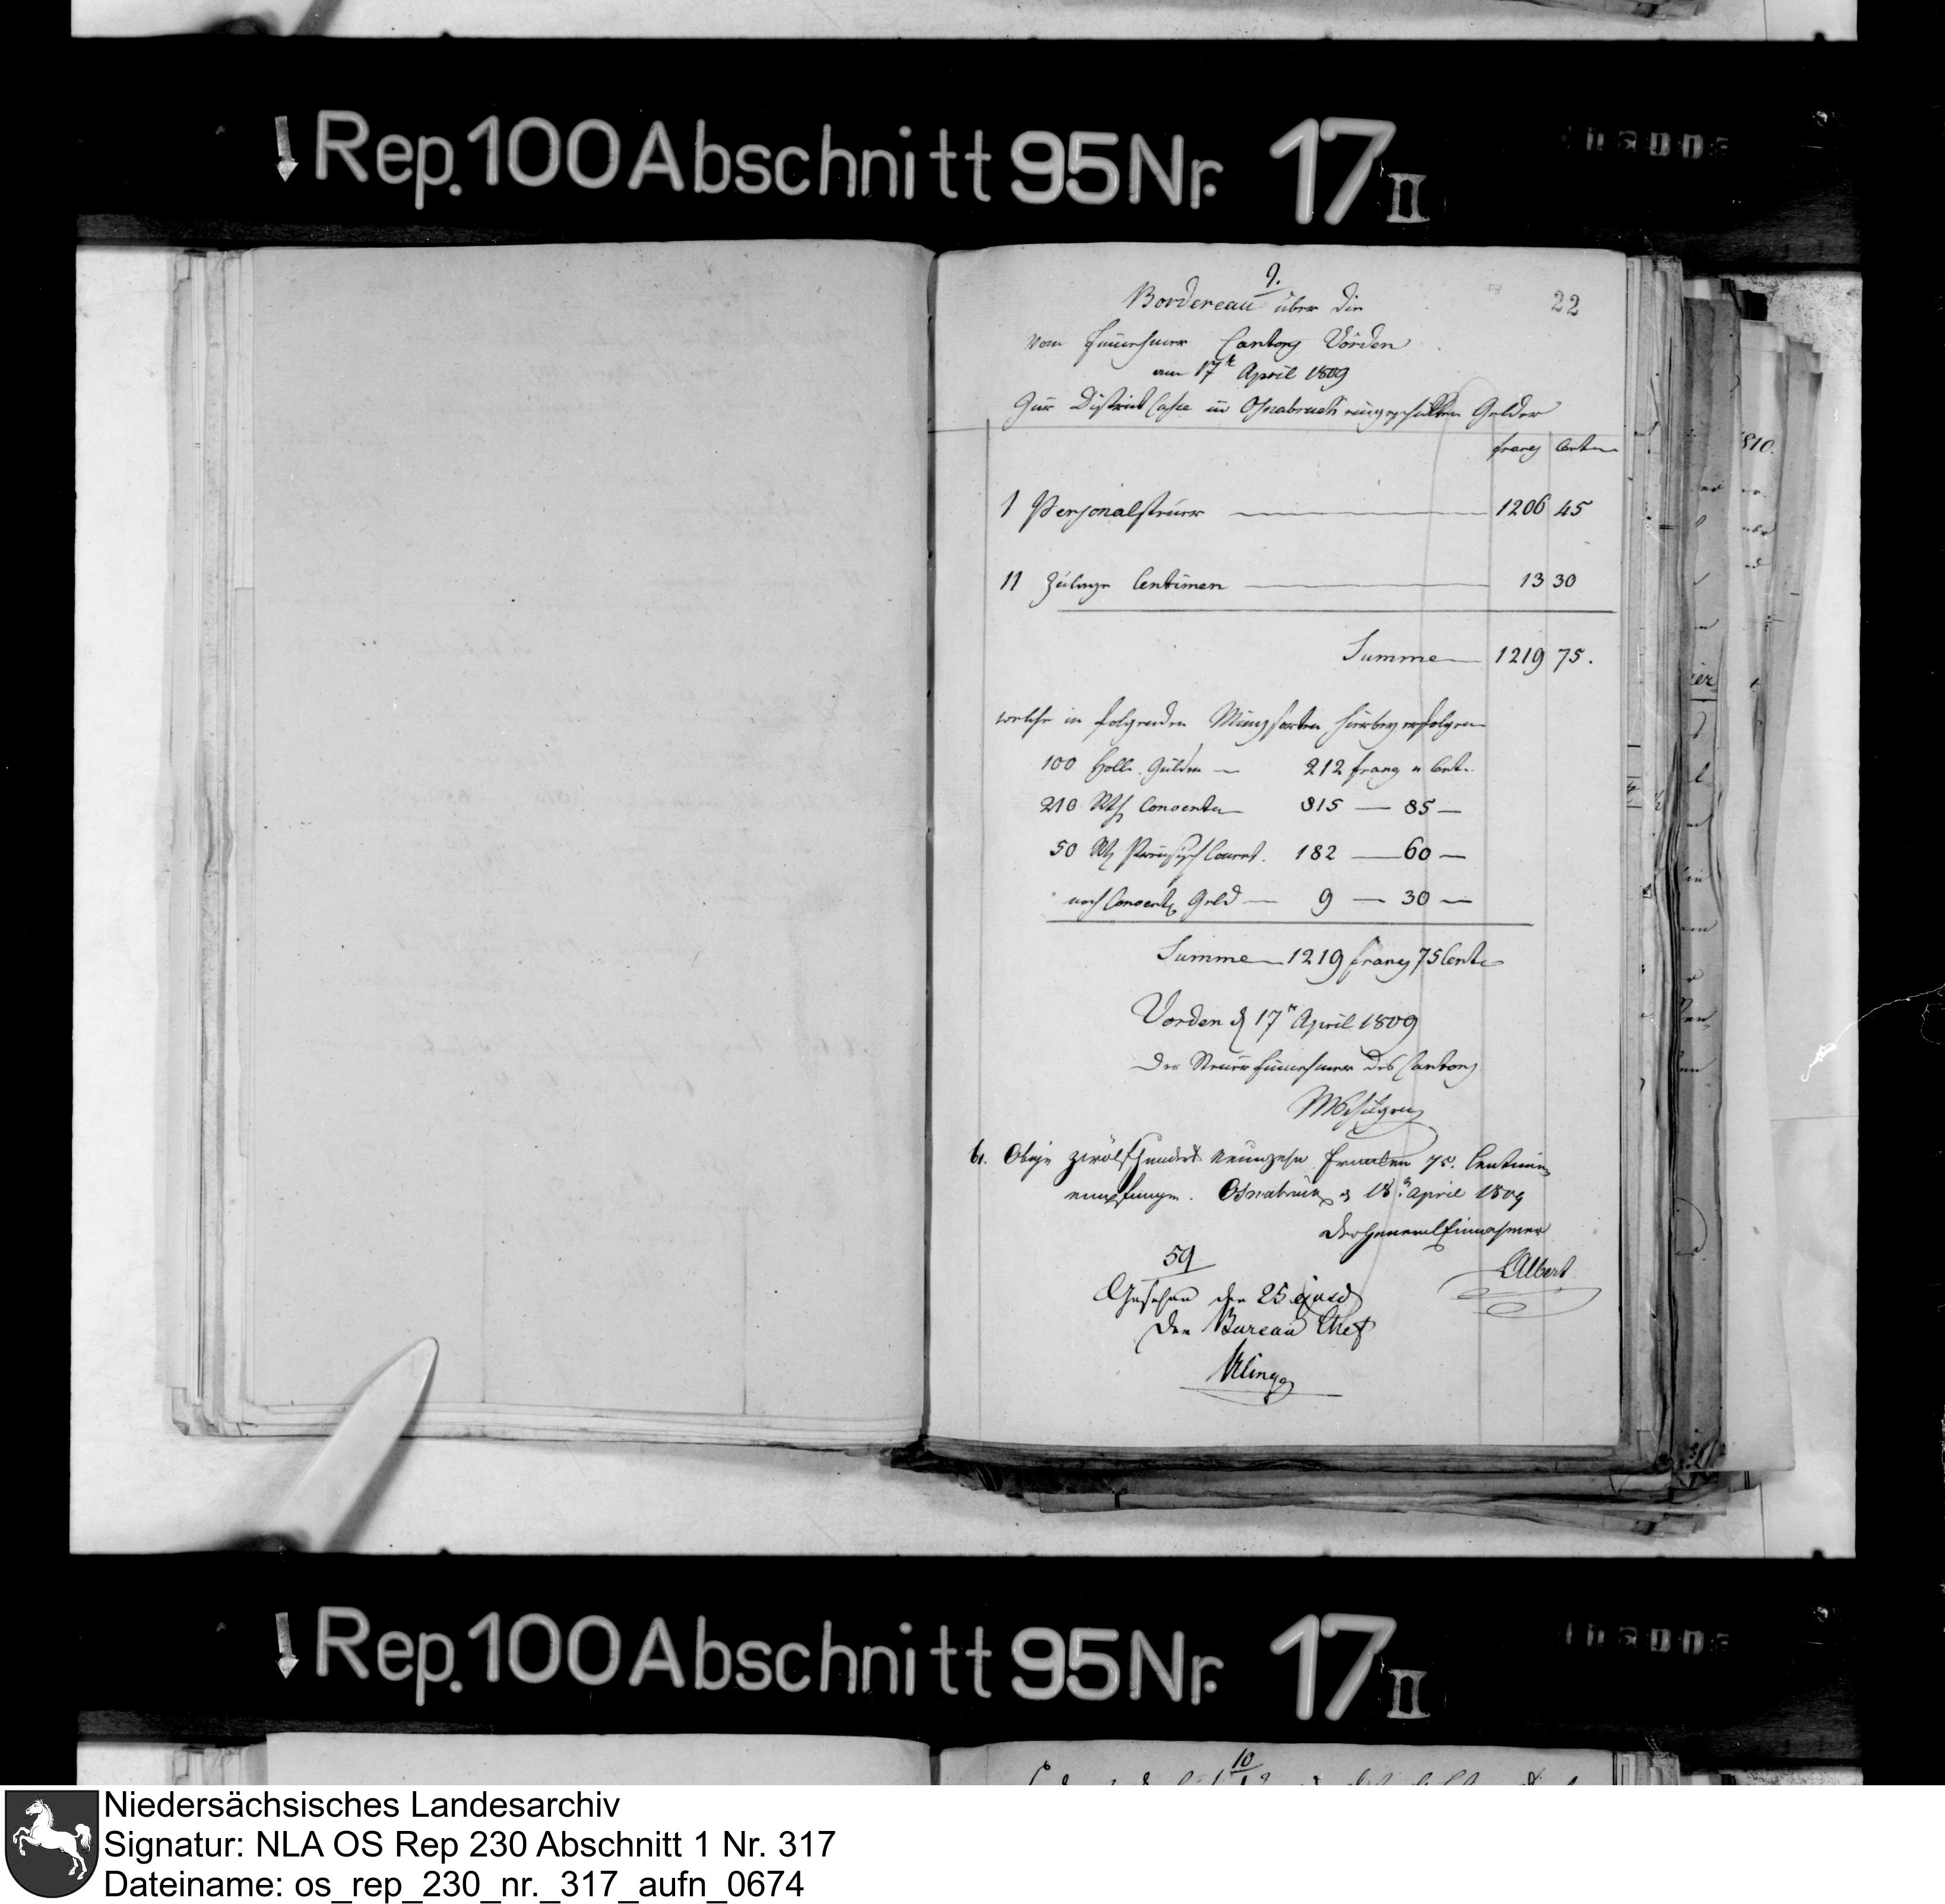 Rep. 100 Abschnitt 95 Nr. 17 II
9.
22
Bordereau über die
vom Einnehmer Cantons Vörden
am 17t April 1809
zur District Casse in Osnabruck eingezahlten Gelder
francs Cent
1 Personalsteuer 1206 45
11 Zulage Centimen 13 30
Summe 1219 75.
welche in folgenden Münzsorten hierbey erfolgen
100 Holl. Gulden — 212 francs " Cent.
210 Rth Convent 815 — 85 —
50 Rth Preusisch Courant. 182 — 60 —
noch Convent Geld — 9 — 30 —
Summe 1219 francs 75 Cent
Vorden d 17n April 1809
Der Steuer Einnehmer des Cantons
810.
b. Obige zwölfhundert Neunzehn Franken 75. Centimen
empfangen. Osnabrück d 18n April 1809
Der General Einnehmer
Albert
59
Gesehen den 25 ejusd
Der Bureau Chef
Klinge
Rep. 100 Abschnitt 95 Nr. 17 II
10
Niedersächsisches Landesarchiv
Signatur: NLA OS Rep 230 Abschnitt 1 Nr. 317
Dateiname: os_rep_230_nr._317_aufn_0674